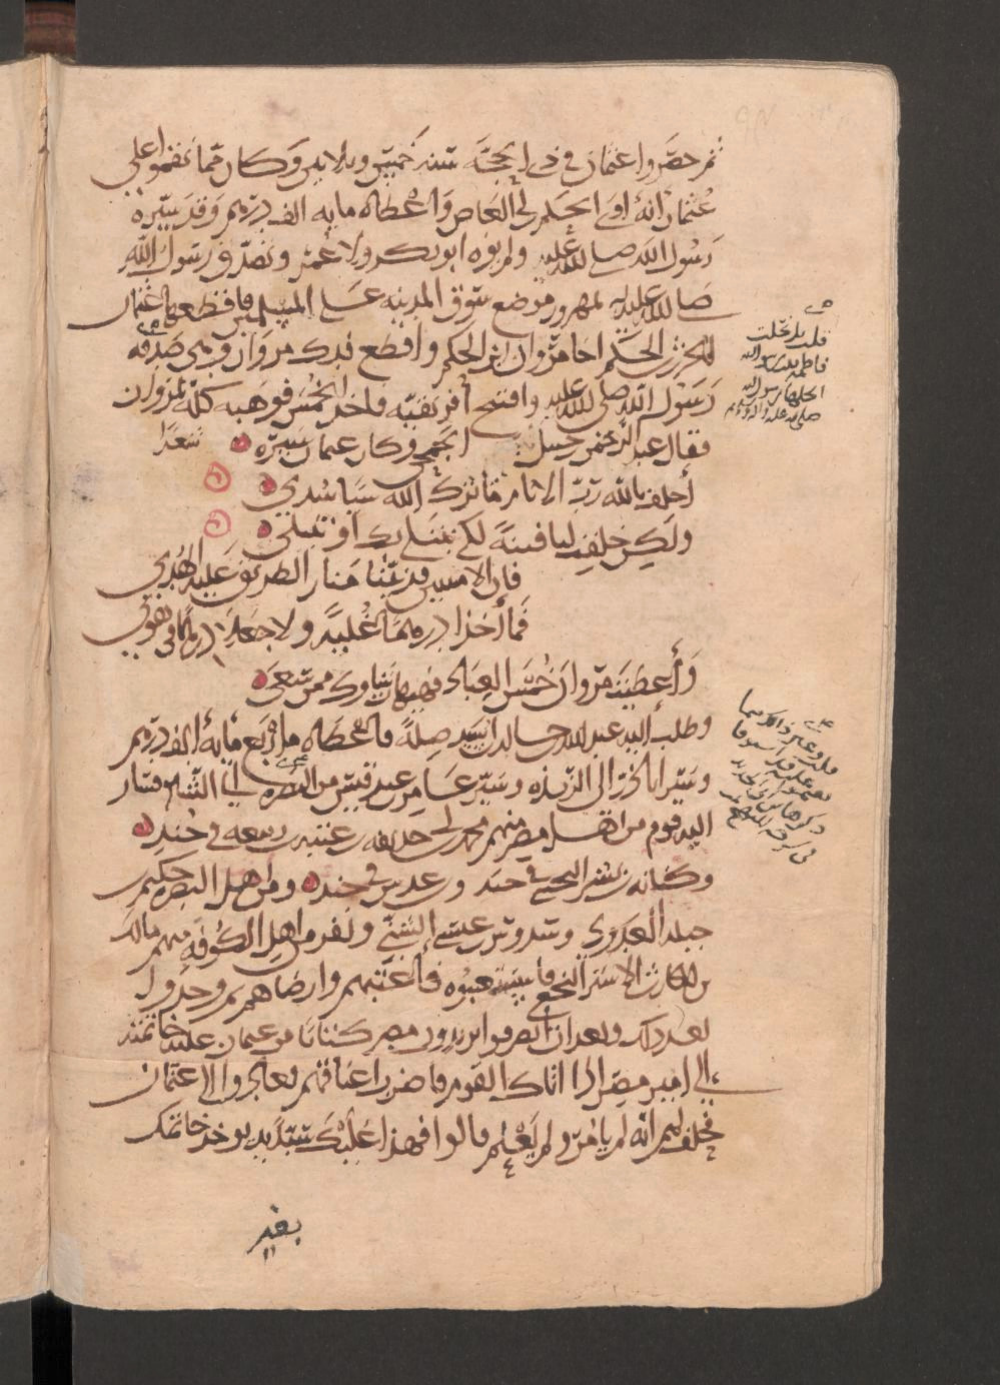 ثم حصروا عثمان في ذي الحجة سنة خمس وثلاثين وكان مما نقموا على
عثمان أنه آوى الحكم بن أبي العاص وأعطاه مايه الف درهم وقد سيره
رسول الله صلى الله عليه ولم يؤوه ابو بكر ولا عمر وتصدق رسول الله
صلى الله عليه بمهزور موضع سوق المدينة على المسلمين فاقطعها عثمان
الحرث بن الحكم اخا مروان ابن الحكم وأقطع فدك مروان وهي صدقة
رسول الله صلى الله عليه وافتتح أفريقيه فاخذ الخمس فوهبه كله لمروان
فقال عبد الرحمن بن حسل الجمحي وكان عثمان سيره شعرا
أحلف بالله رب الانام ما ترك الله شيا سدى
ولكن خلقت لنا فتنة لكي نبتلى بك أو تبتلى
فإن الامينين قد بينا منار الطريق عليه الهدى
فما أخذا درهما غيلة ولا جعلا درهما في هوى
وأعطيت مروان خمس العباد فهيهات شاوك ممن سعى
وطلب اليه عبد الله بن خالد بن أسيد صلة فاعطاه اربع مايه الف درهم
وسير ابا ذر الى الربذه وسير عامر بن عبد قيس من البصرة الى الشام فسار
اليه قوم من اهل مصر منهم محمد بن ابي حذيفه بن عتبه بن ربيعه في جند
وكنانه بن بشر التجيبي في جند وبن عديس في جند ومن اهل البصره حكيم بن
جبله العبدي وسدوس بن عبيس الشني ونفر من اهل الكوفه منهم مالك
بن الحارث الاشتر النخعي فاستعتبوه فاعتبهم وارضاهم ثم وجدوا
بعد ذلك وبعد ان انصرفوا يريدون مصر كتابا من عثمان عليه خاتمه
الى امير مصر اذا اتاك القوم فاضرب اعناقهم فعادوا الى عثمان
فحلف لهم انه لم يامر ولم يعلم قالوا فهذا عليك شديد يوخذ خاتمك
بغير
قلت بل نحلت
فاطمة بنت رسول الله
انحلها رسول الله
صلى الله عليه واله وسلم